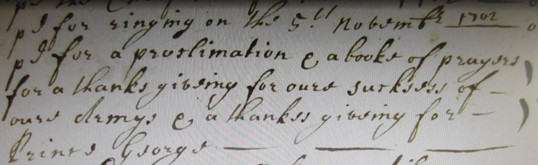 pd for ringing on the 5th Novembr 1702
pd for a proclimation & a booke of prayers
for a thanks giveing for oure sucksess of
oure Armys & a thankss giveing for
Prince George